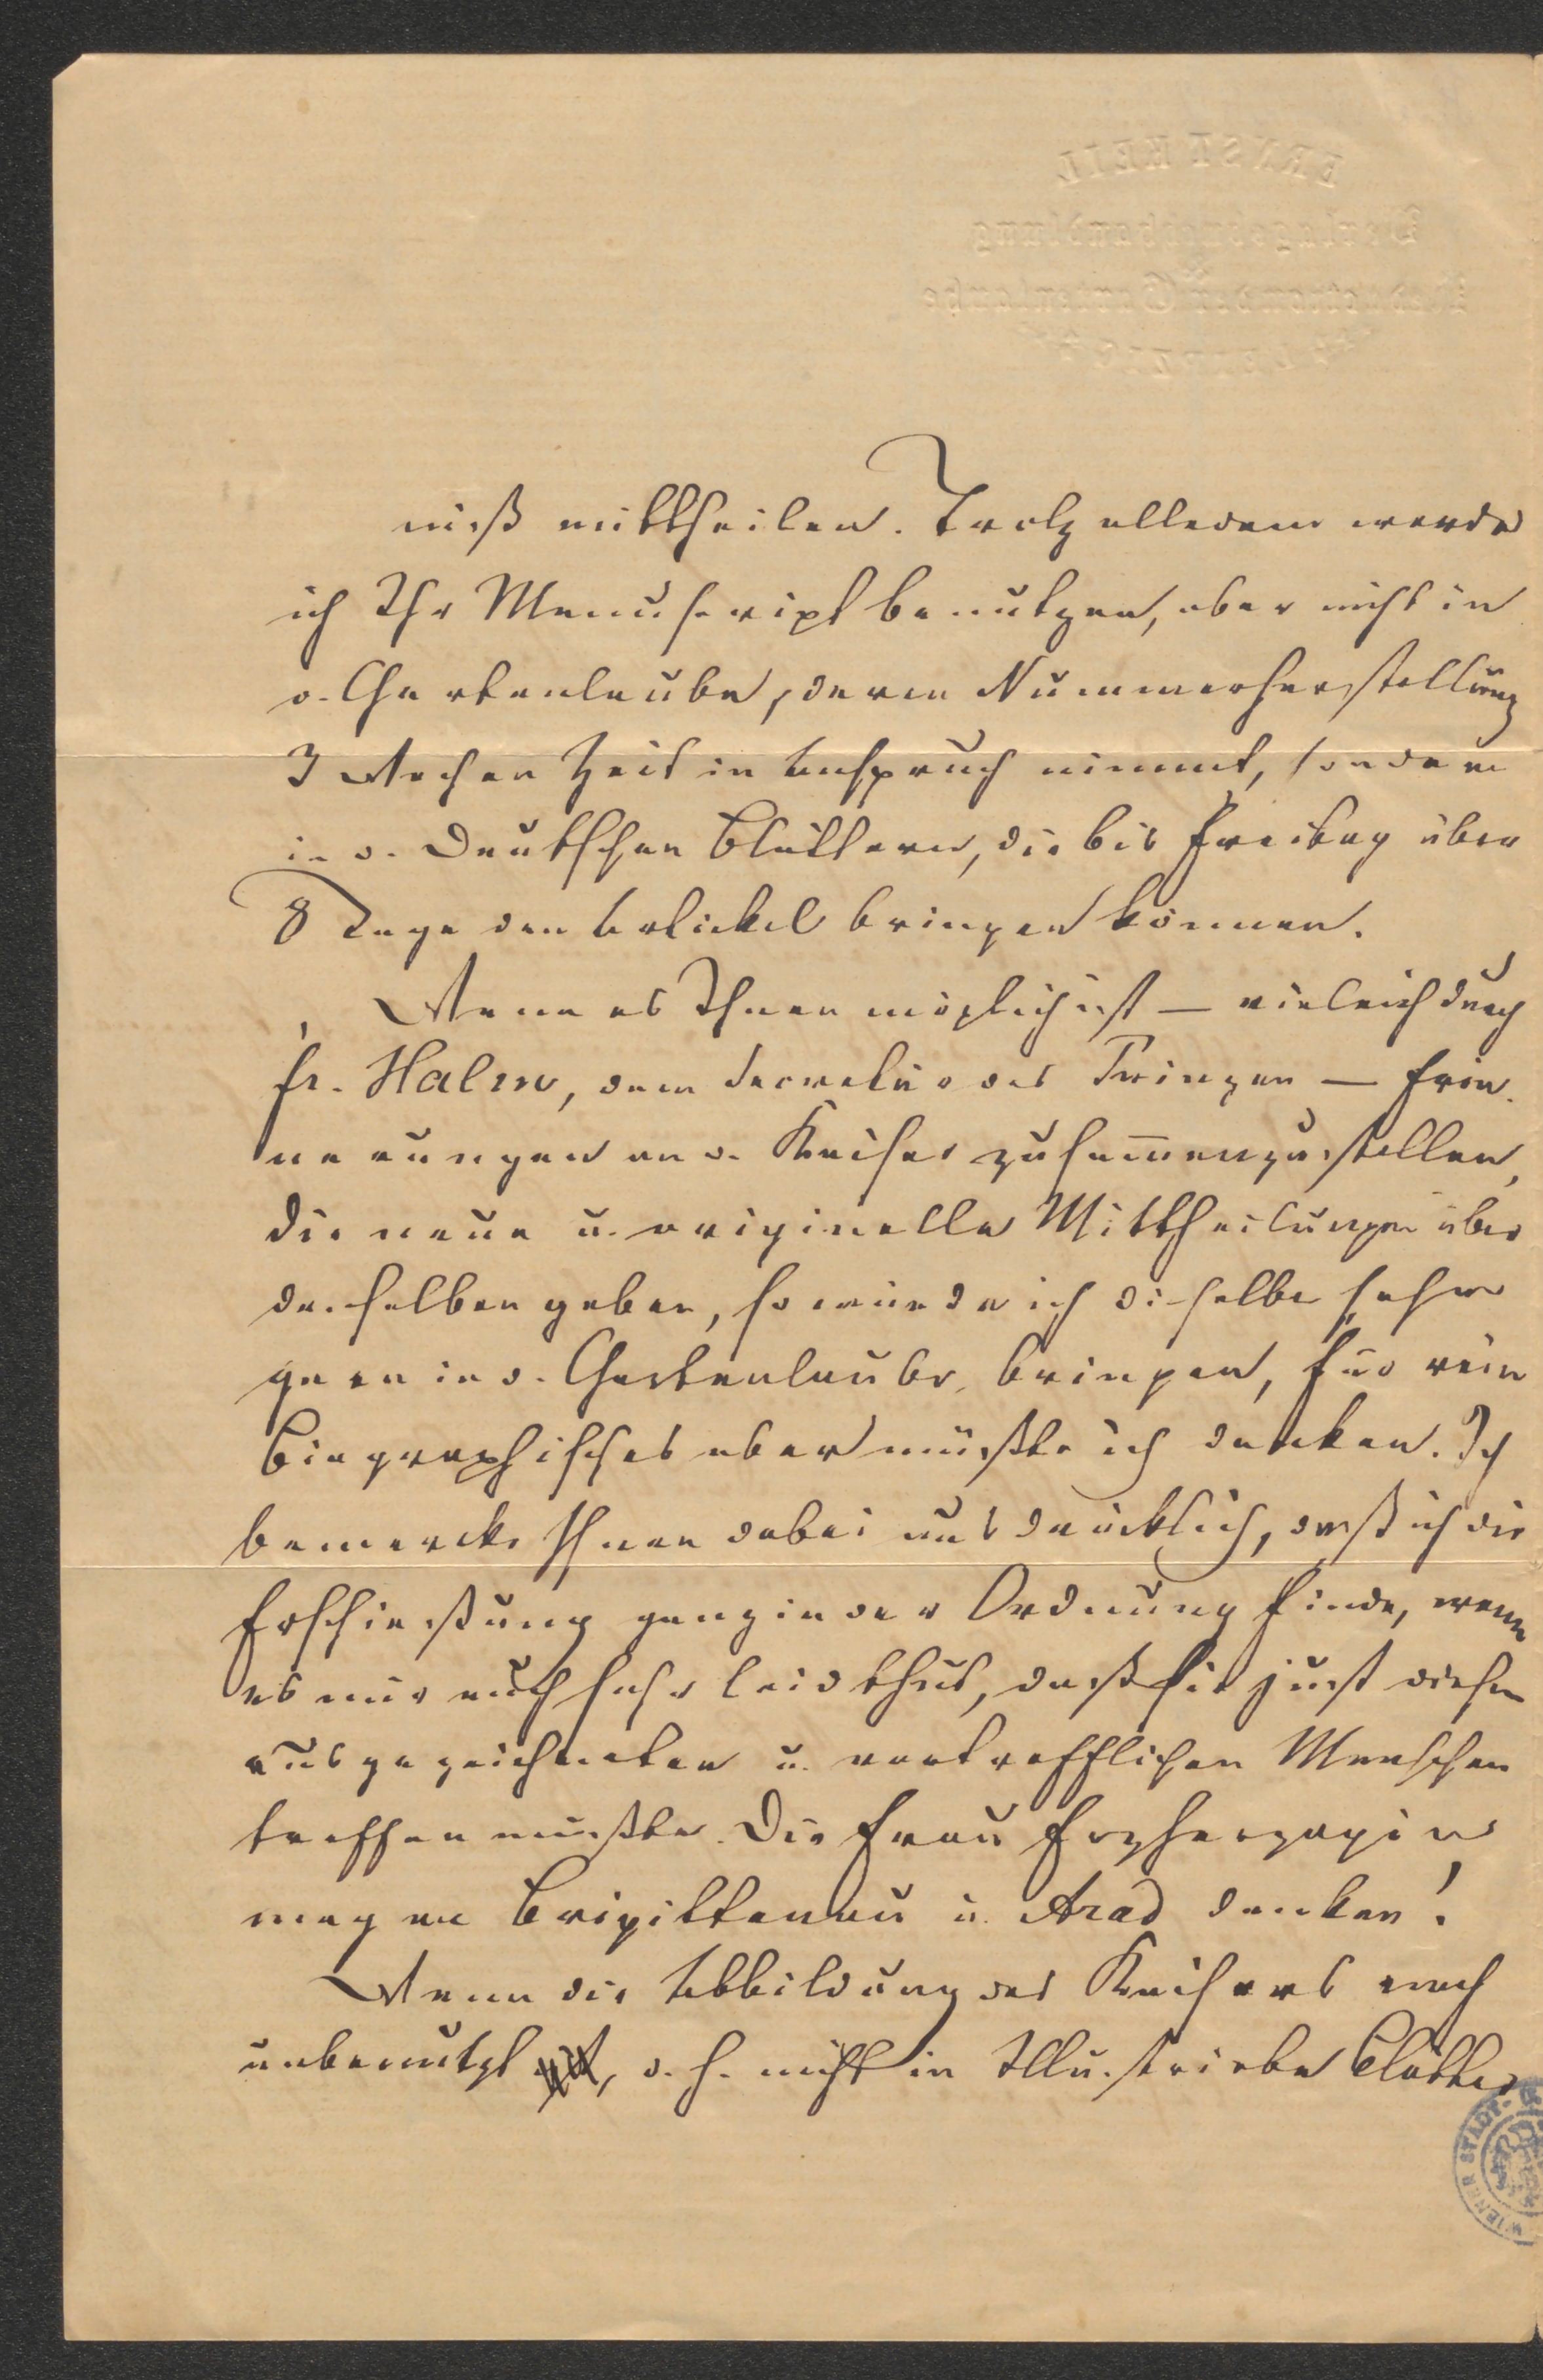 ERNST KEIL
Verlagsbuchhandlung
Redaction der Gartenlaube
LEIPZIG
niß mittheilen. Trotz alledem werde
ich Ihr Manuscript benutzen, aber nicht in
d. Gartenlaube, deren Nummerherstellung
3 Wochen Zeit in Anspruch nimmt, sondern
in d. Deutschen Blättern, die bis Freitag über
8 Tage den Artickel bringen können.
Wenn es Ihnen möglich ist — vieleich durch
Fr. Halm, dem Secretär des Prinzen — Erin¬
nerungen an d. Kaiser zusam̅enzustellen,
die neue u. originelle Mittheilungen über
denselben geben, so würde ich dieselbe sehr
gern in d. Gartenlaube bringen, für rein
Biographisches aber müßte ich danken. Ich
bemercke Ihnen dabei ausdrücklich, daß ich die
Erschießung ganz in der Ordnung finde, wenn
es mir auch sehr leid thut, daß sie just diesen
ausgezeichneten u. vortrefflichen Menschen
treffen mußte. Die Frau Erzherzogin
mag an Brigittenau u. Arad denken!
Wenn die Abbildung des Kaisers noch
unbenutzt ist, d. h. nicht in Illustrirte Blätter
WIENER STADT-